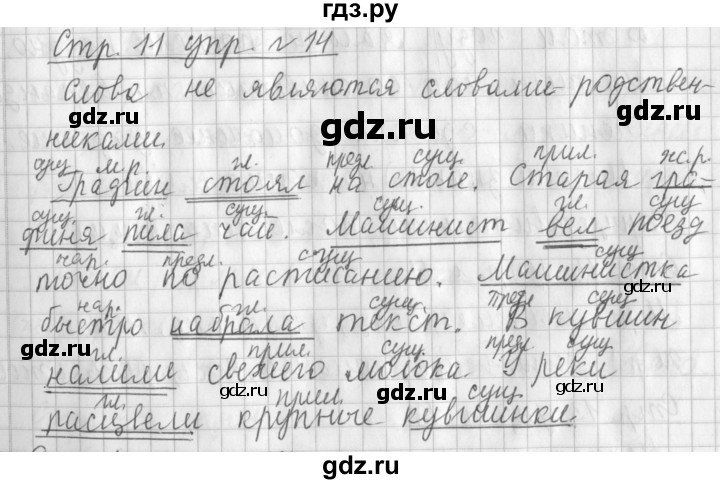 гдз.ру
Стр. 11 упр. № 14
Слова не являются словами родствен-
gdz.ru
gdz.ru
никами.
сущ. м.р. гл. предл сущ. прил. ж.р.
Графин стоял на столе. Старая гра-
сущ. гл. сущ. сущ. гл. сущ
финя пила чай. Машинист вел поезд
нар. предл. сущ сущ
точно по расписанию. Машинистка
gdz.ru
gdz.ru
нар. гл. сущ. предл сущ
быстро набрала текст. В кувшин
gdz.ru
гл. прил. сущ. предл. сущ.
налили свежего молока У реки
gdz.ru
gdz.ru
гл. прил. сущ.
расцвели крупные кувшинки.
gdz.ru